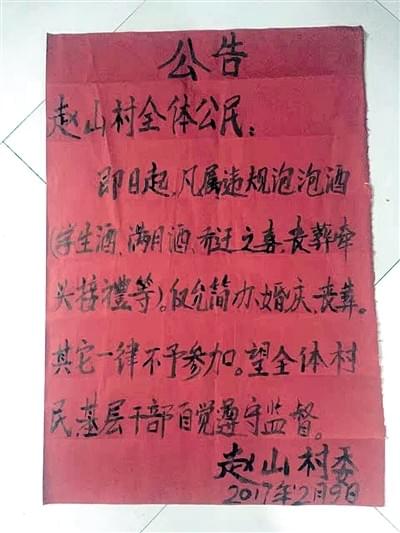 公告
赵山村全体公民：
即日起，凡属违规泡泡酒
（学生酒、满月酒、乔迁之喜、丧葬牵
头接禮等）。仅允简办、婚庆、丧葬。
其它一律不予参加。望全体村
民、基层干部自觉遵守监督。
赵山村委
2017年2月9日